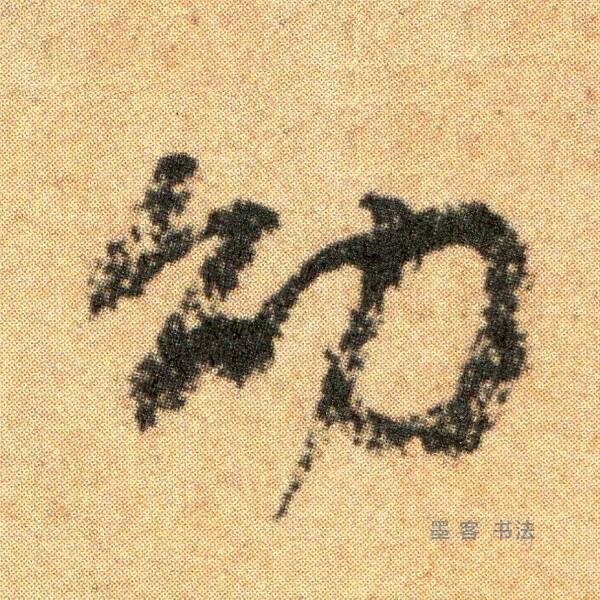 幼
墨客书法